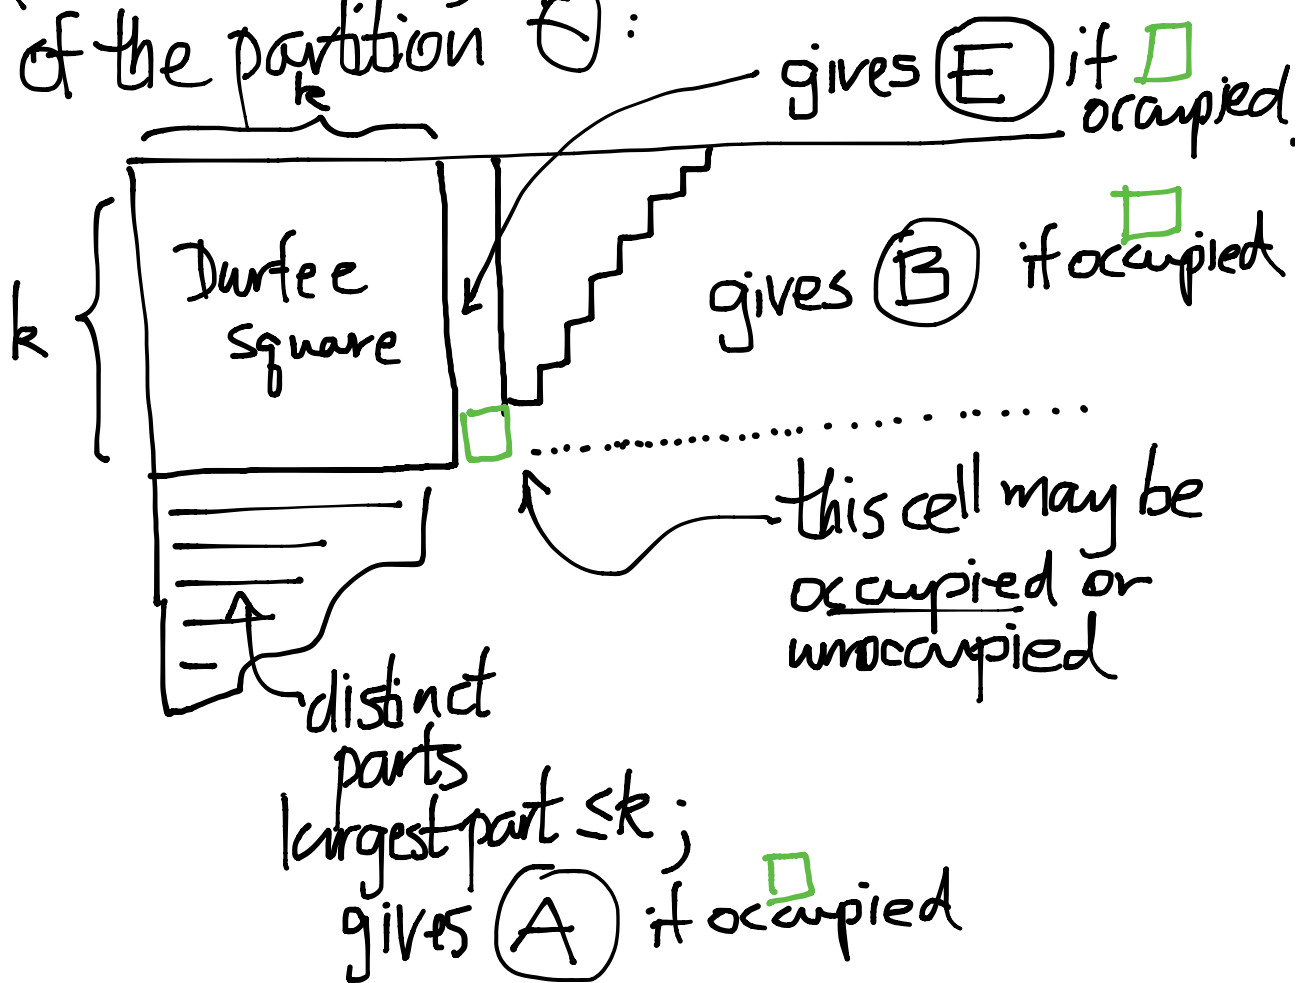 of the partition C:
k
gives E if
occupied.
k
Durfee
square
gives B if occupied
this cell may be
occupied or
unoccupied
distinct
parts
largest part ≤k;
gives A if occupied